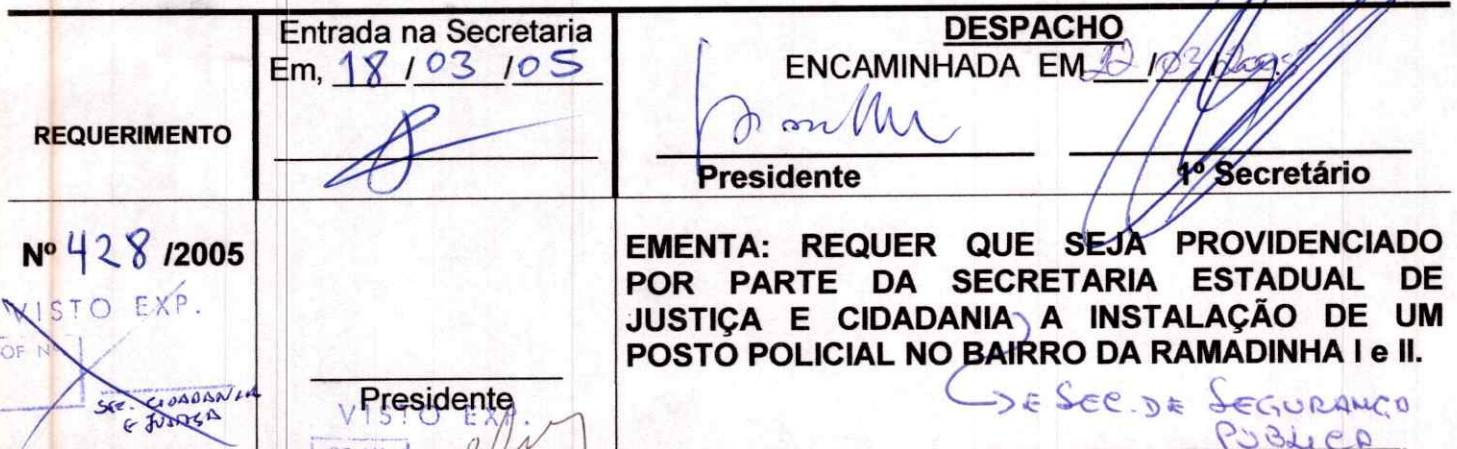 REQUERIMENTO
Entrada na Secretaria
Em, 18 / 03 / 05
DESPACHO
ENCAMINHADA EM 22 / 03 /
Presidente
1º Secretário
Nº 428 /2005
VISTO EXP.
OF Nº
SEC. CIDADANIA
E JUSTIÇA
Presidente
VISTO EXP.
EMENTA: REQUER QUE SEJA PROVIDENCIADO
POR PARTE DA SECRETARIA ESTADUAL DE
JUSTIÇA E CIDADANIA A INSTALAÇÃO DE UM
POSTO POLICIAL NO BAIRRO DA RAMADINHA I e II.
DE SEC. DE SEGURANÇA
PÚBLICA